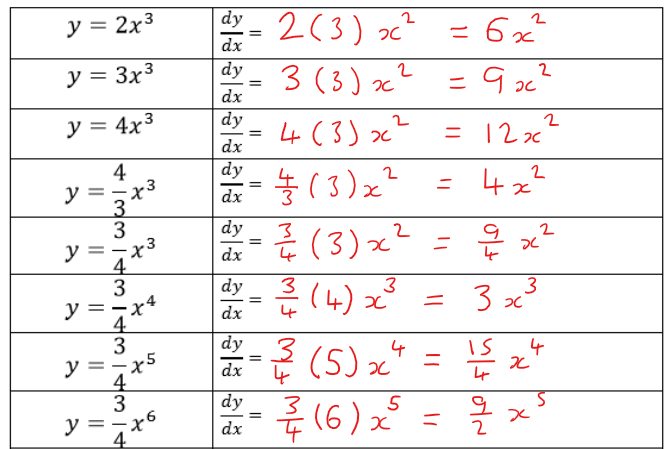 y = 2x³ dy/dx = 2(3)x² = 6x²
y = 3x³ dy/dx = 3(3)x² = 9x²
y = 4x³ dy/dx = 4(3)x² = 12x²
y = 4/3 x³ dy/dx = 4/3 (3)x² = 4x²
y = 3/4 x³ dy/dx = 3/4 (3)x² = 9/4 x²
y = 3/4 x⁴ dy/dx = 3/4 (4)x³ = 3x³
y = 3/4 x⁵ dy/dx = 3/4 (5)x⁴ = 15/4 x⁴
y = 3/4 x⁶ dy/dx = 3/4 (6)x⁵ = 9/2 x⁵